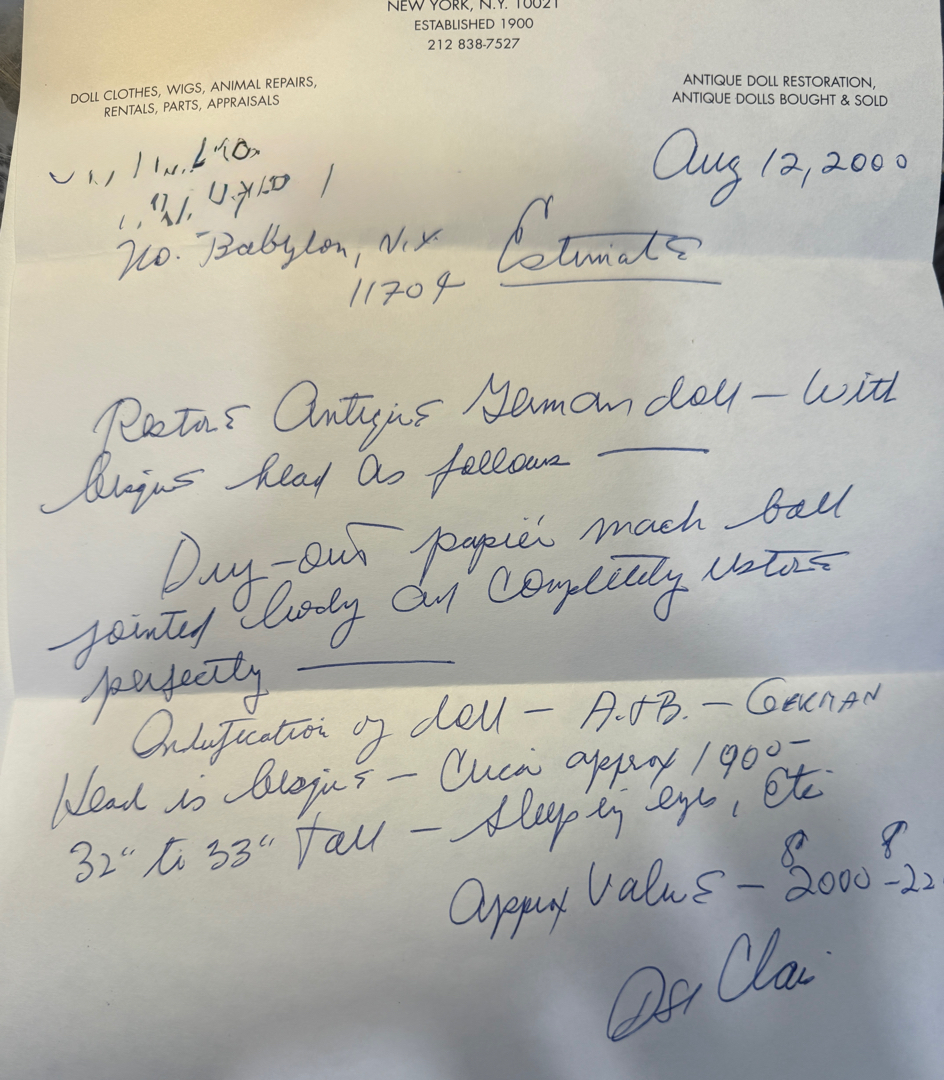 NEW YORK, N.Y. 10021
ESTABLISHED 1900
212 838-7527
DOLL CLOTHES, WIGS, ANIMAL REPAIRS,
RENTALS, PARTS, APPRAISALS
ANTIQUE DOLL RESTORATION,
ANTIQUE DOLLS BOUGHT & SOLD
Aug 12, 2000
No. Babylon, N.Y.
11704
Estimate
Restore Antique German doll — with
bisque head as follows —
Dry-out papier mach ball
jointed body and completely restore
perfectly —
Indefication of doll — A.+B. — GERMAN
Head is bisque — Circa approx 1900 —
32" to 33" tall — sleeping eyes, etc
Approx Value — $2000 - $22